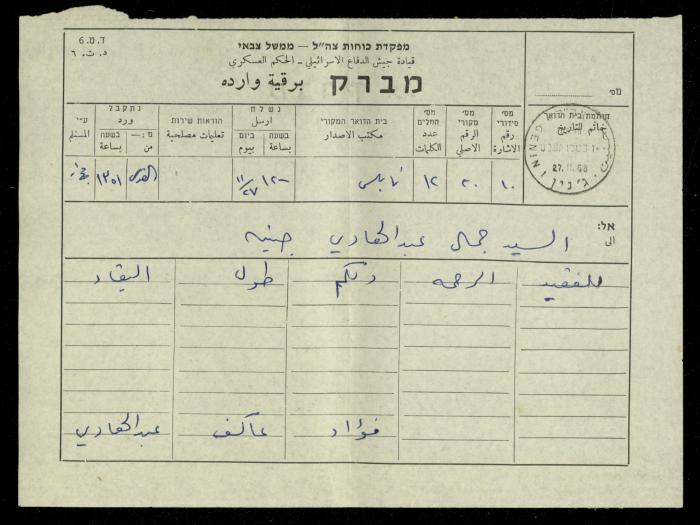 ד.מ. 6
د.ت. ٦
מפקדת כוחות צה"ל — ממשל צבאי
قيادة جيش الدفاع الاسرائيلي - الحكم العسكري
מברק برقية وارده
מס׳
חותמת בית הדואר
خاتم التاريخ
מס׳ סידורי
رقم الاشارة
מס׳ מקורי
الرقم الاصلي
מס׳ המלים
عدد الكلمات
בית הדואר המקורי
مكتب الاصدار
נשלח
ارسل
בשעה
بساعة
ביום
بيوم
הוראות שירות
تعليمات مصلحية
נתקבל
ورد
מ:—
من
בשעה
بساعة
ע״י
المستلم
١٠ ٢٠ ١٢ نابلس ١٢٠٠ ٢٧/١١ القدس ١٣٥١
JENIN ג'נין جنين 27.11.68
אל:
الى
السيد جمال عبدالهادي جنين
للفقيد الرحمه ولكم طول البقاء
فؤاد عاكف عبدالهادي